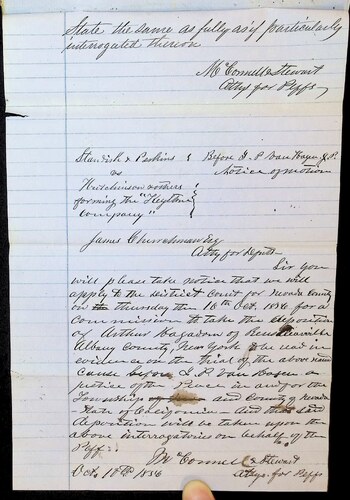 State the same as fully as if particularly
interrogated thereon
McConnell & Stewart
Attys for Plffs
Standish & Perkins
vs
Hutchinson & others
forming the "Keystone
Company"
Before I. P. Van Hagen J.P.
Notice of motion
James Churchman Esq
Atty for Defendts
Sir you
will please take notice that we will
apply to the District Court for Nevada County
on Thursday the 16th Oct. 1856 for a
commission to take the deposition
of Arthur Hagadorn of
Albany County New York to be used in
evidence on the trial of the above named
cause before I. P. Van Hagen a
justice of the Peace in and for the
Township of and County of Nevada
State of California And that said
deposition will be taken upon the
above interrogatories on behalf of the
Plffs
McConnell & Stewart
Oct. 10th 1856 Attys. for Plffs